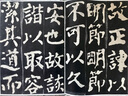 故正諫以
明節明節
不可以久
安也故詼
諧以取容
絜其道而